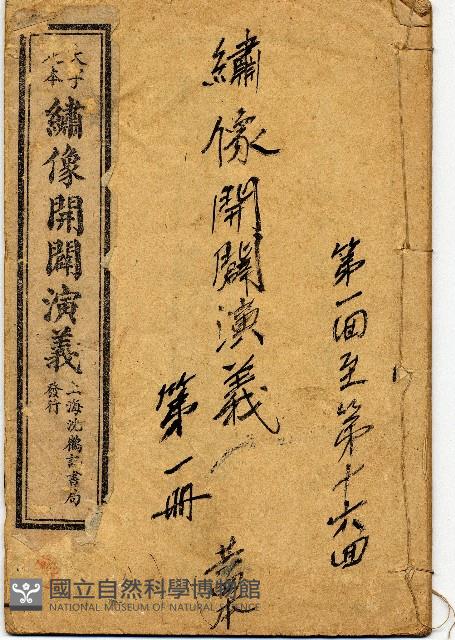 第一回至第十六回
繡像開闢演義
第一冊
大字
足本
繡像開闢演義
上海沈鶴記書局
發行
國立自然科學博物館
NATIONAL MUSEUM OF NATURAL SCIENCE